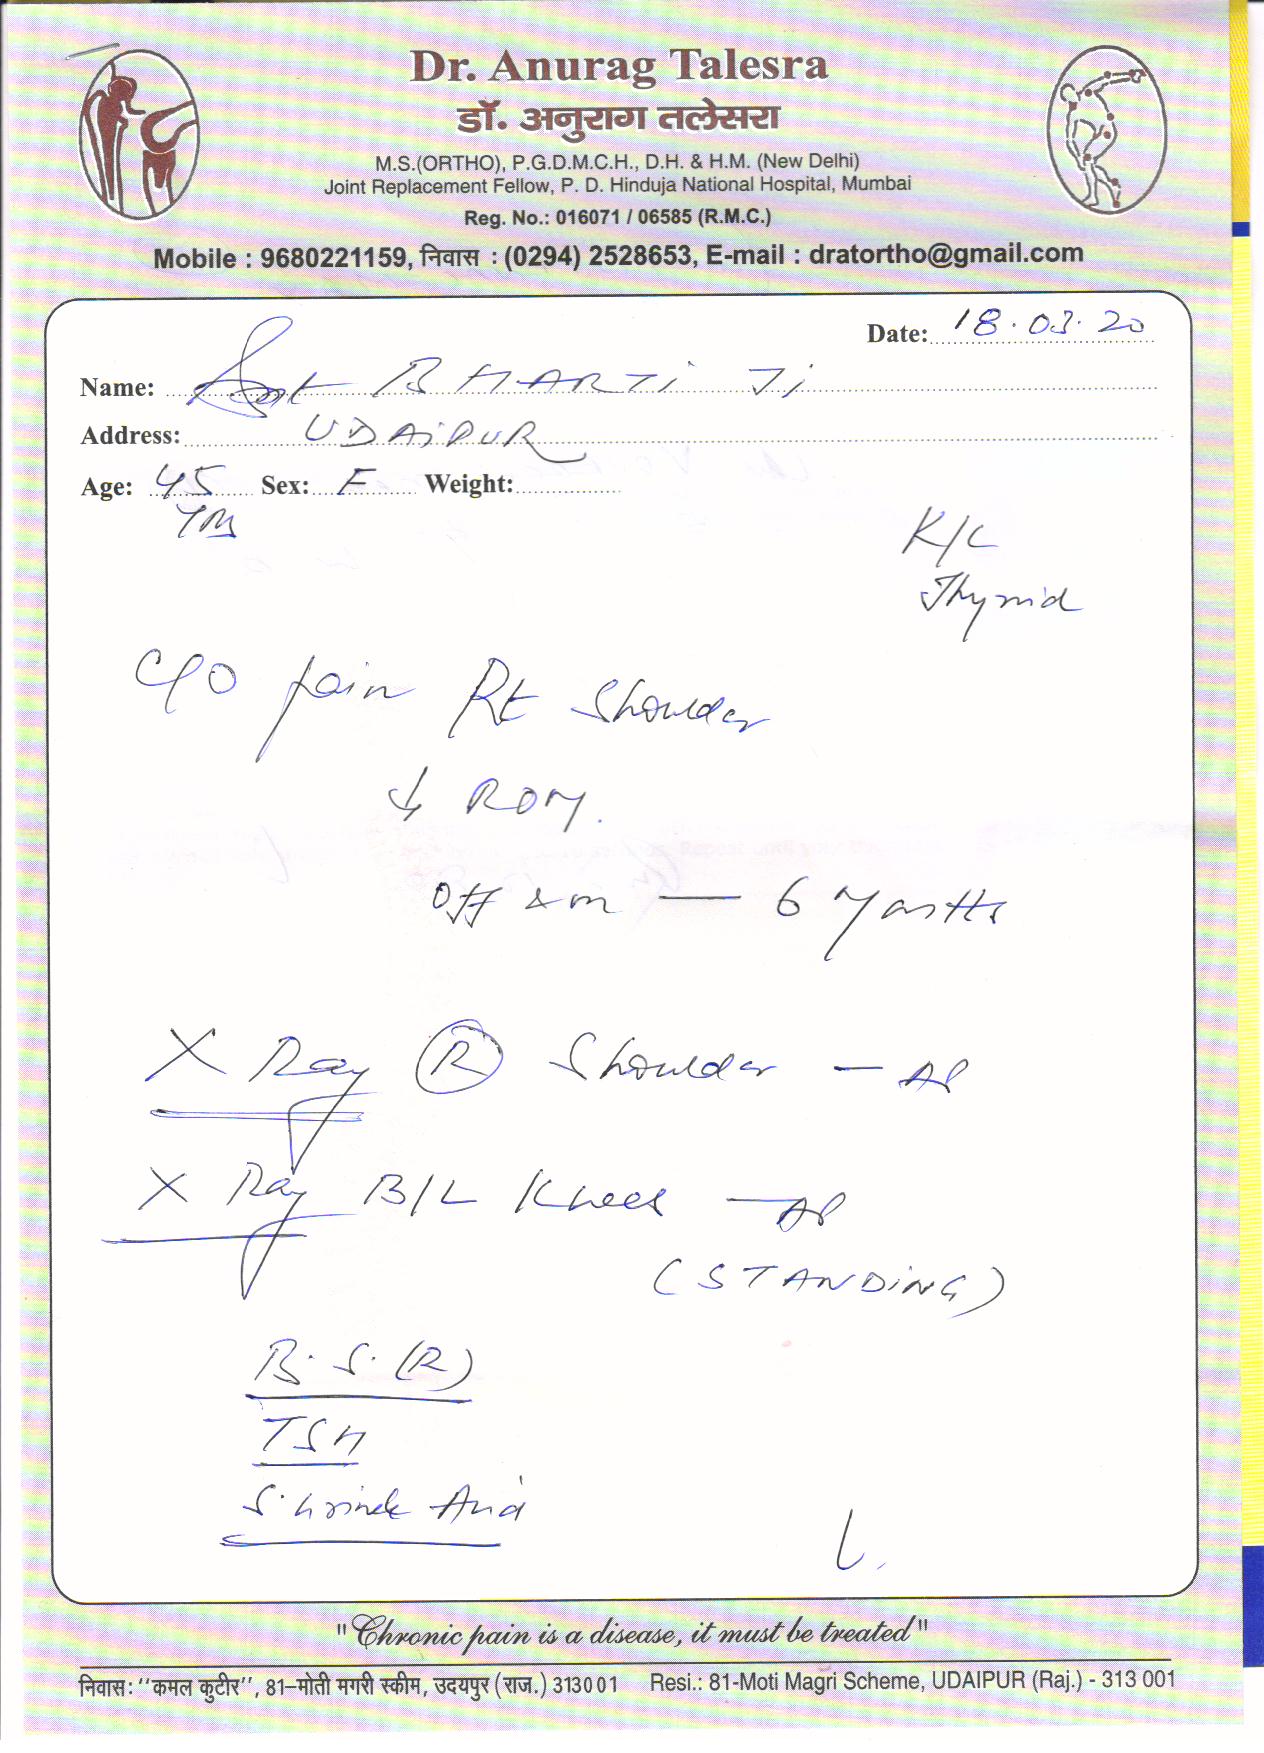 Dr. Anurag Talesra
डॉ. अनुराग तलेसरा
M.S.(ORTHO), P.G.D.M.C.H., D.H. & H.M. (New Delhi)
Joint Replacement Fellow, P. D. Hinduja National Hospital, Mumbai
Reg. No.: 016071 / 06585 (R.M.C.)
Mobile : 9680221159, निवास : (0294) 2528653, E-mail : dratortho@gmail.com
Date: 18.03.20
Name: Smt BHARTi Ji
Address: UDAiPUR
Age: 45 Sex: F Weight:
Yrs
K/C
Thyroid
C/O pain Rt Shoulder
↓ ROM.
Off & on — 6 Months
X Ray (R) Shoulder — AP
X Ray B/L Knees — AP
(STANDiNG)
B.S.(R)
TSH
S. Uric Acid
"Chronic pain is a disease, it must be treated"
निवास: ''कमल कुटीर'', 81–मोती मगरी स्कीम, उदयपुर (राज.) 313001 Resi.: 81-Moti Magri Scheme, UDAIPUR (Raj.) - 313 001